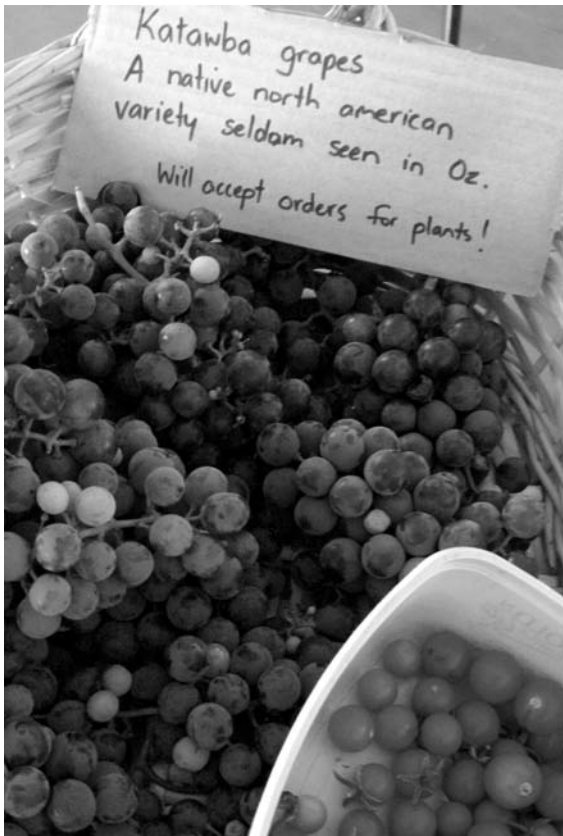 Katawba grapes
A native north american
variety seldam seen in Oz.
Will accept orders for plants!